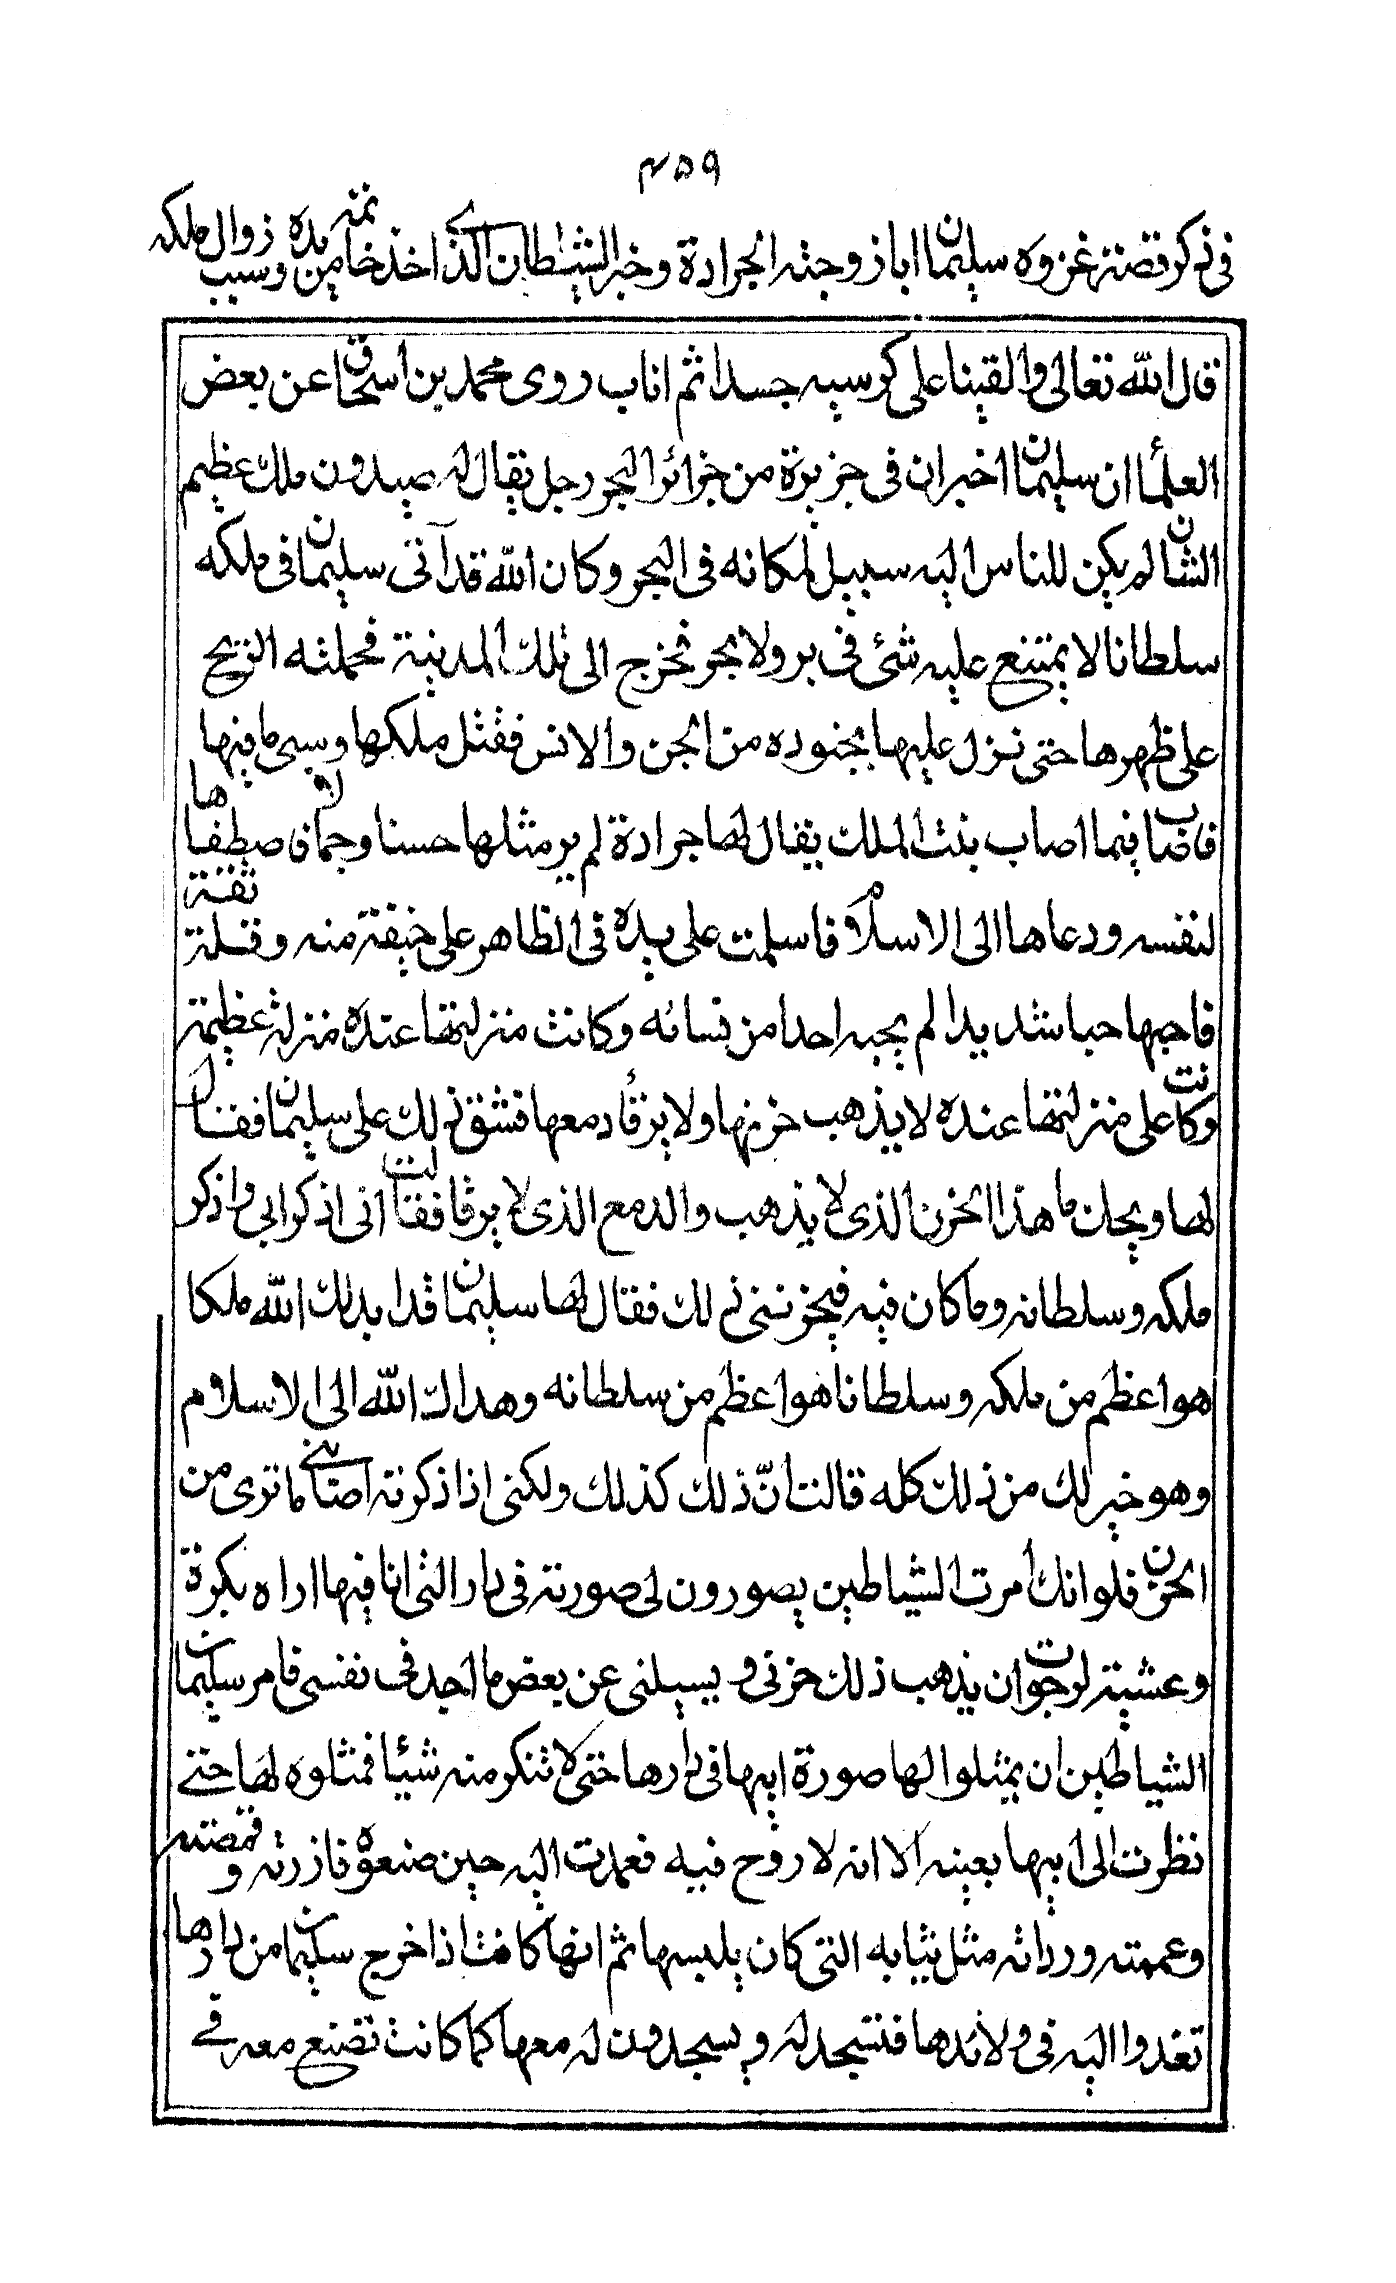 ٤٥٩
في ذكر قصة غزوه سليمان ابا زوجته الجرادة وخبر الشيطان الذي اخذ خاتمه من يده وسبب زوال ملكه
قال الله تعالى والقينا على كرسيه جسدا ثم اناب روى محمد بن اسحاق عن بعض
العلمأ ان سليمان اخبر ان في جزيرة من جزائر البحر رجل يقال له صيدون ملك عظيم
الشان لم يكن للناس اليه سبيل لمكانه في البحر وكان الله قد آتى سليمان في ملكه
سلطانا لا يمتنع عليه شئ في بر ولا بحر فخرج الى تلك المدينة فحملته الريح
على ظهرها حتى نزل عليها بجنوده من الجن والانس فقتل ملكها وسبى ما فيها
فاصاب فيما اصاب بنت الملك يقال لها جرادة لم ير مثلها حسنا وجمالا فاصطفاها
لنفسه ودعاها الى الاسلام فاسلمت على يده في الظاهر على خيفة منه وقلة ثقة
فاحبها حبا شديدا لم يحبه احدا من نسائه وكانت منزلتها عنده منزلة عظيمة
وكانت على منزلتها عنده لا يذهب حزنها ولا يرقأ دمعها فشق ذلك على سليمان فقال
لها ويحك ما هذا الحزن الذى لا يذهب والدمع الذى لا يرقأ فقالت انى اذكر ابى واذكر
ملكه وسلطانه وما كان فيه فيحزننى ذلك فقال لها سليمان قد ابدلك الله ملكا
هو اعظم من ملكه وسلطانا هو اعظم من سلطانه وهداك الله الى الاسلام
وهو خير لك من ذلك كله قالت أنّ ذلك كذلك ولكنى اذا ذكرته اصابنى ما ترى من
الحزن فلو انك أمرت الشياطين يصورون لى صورته في دار التى انا فيها اراه بكرة
وعشية لرجوت ان يذهب ذلك حزنى و يسيلنى عن بعض ما اجد في نفسى فامر سليمان
الشياطين ان يمثلوا لها صورة ابيها في دارها حتى لا تنكر منه شيئا فمثلوه لها حتى
نظرت الى ابيها بعينه الا انه لا روح فيه فعمدت اليه حين صنعوه فازرته و قمصته
وعممته وردائه مثل ثيابه التى كان يلبسها ثم انها كانت اذا خرج سليمان من دارها
تغدوا اليه في ولائدها فتسجد له و يسجدون له معها كما كانت تصنع معه في